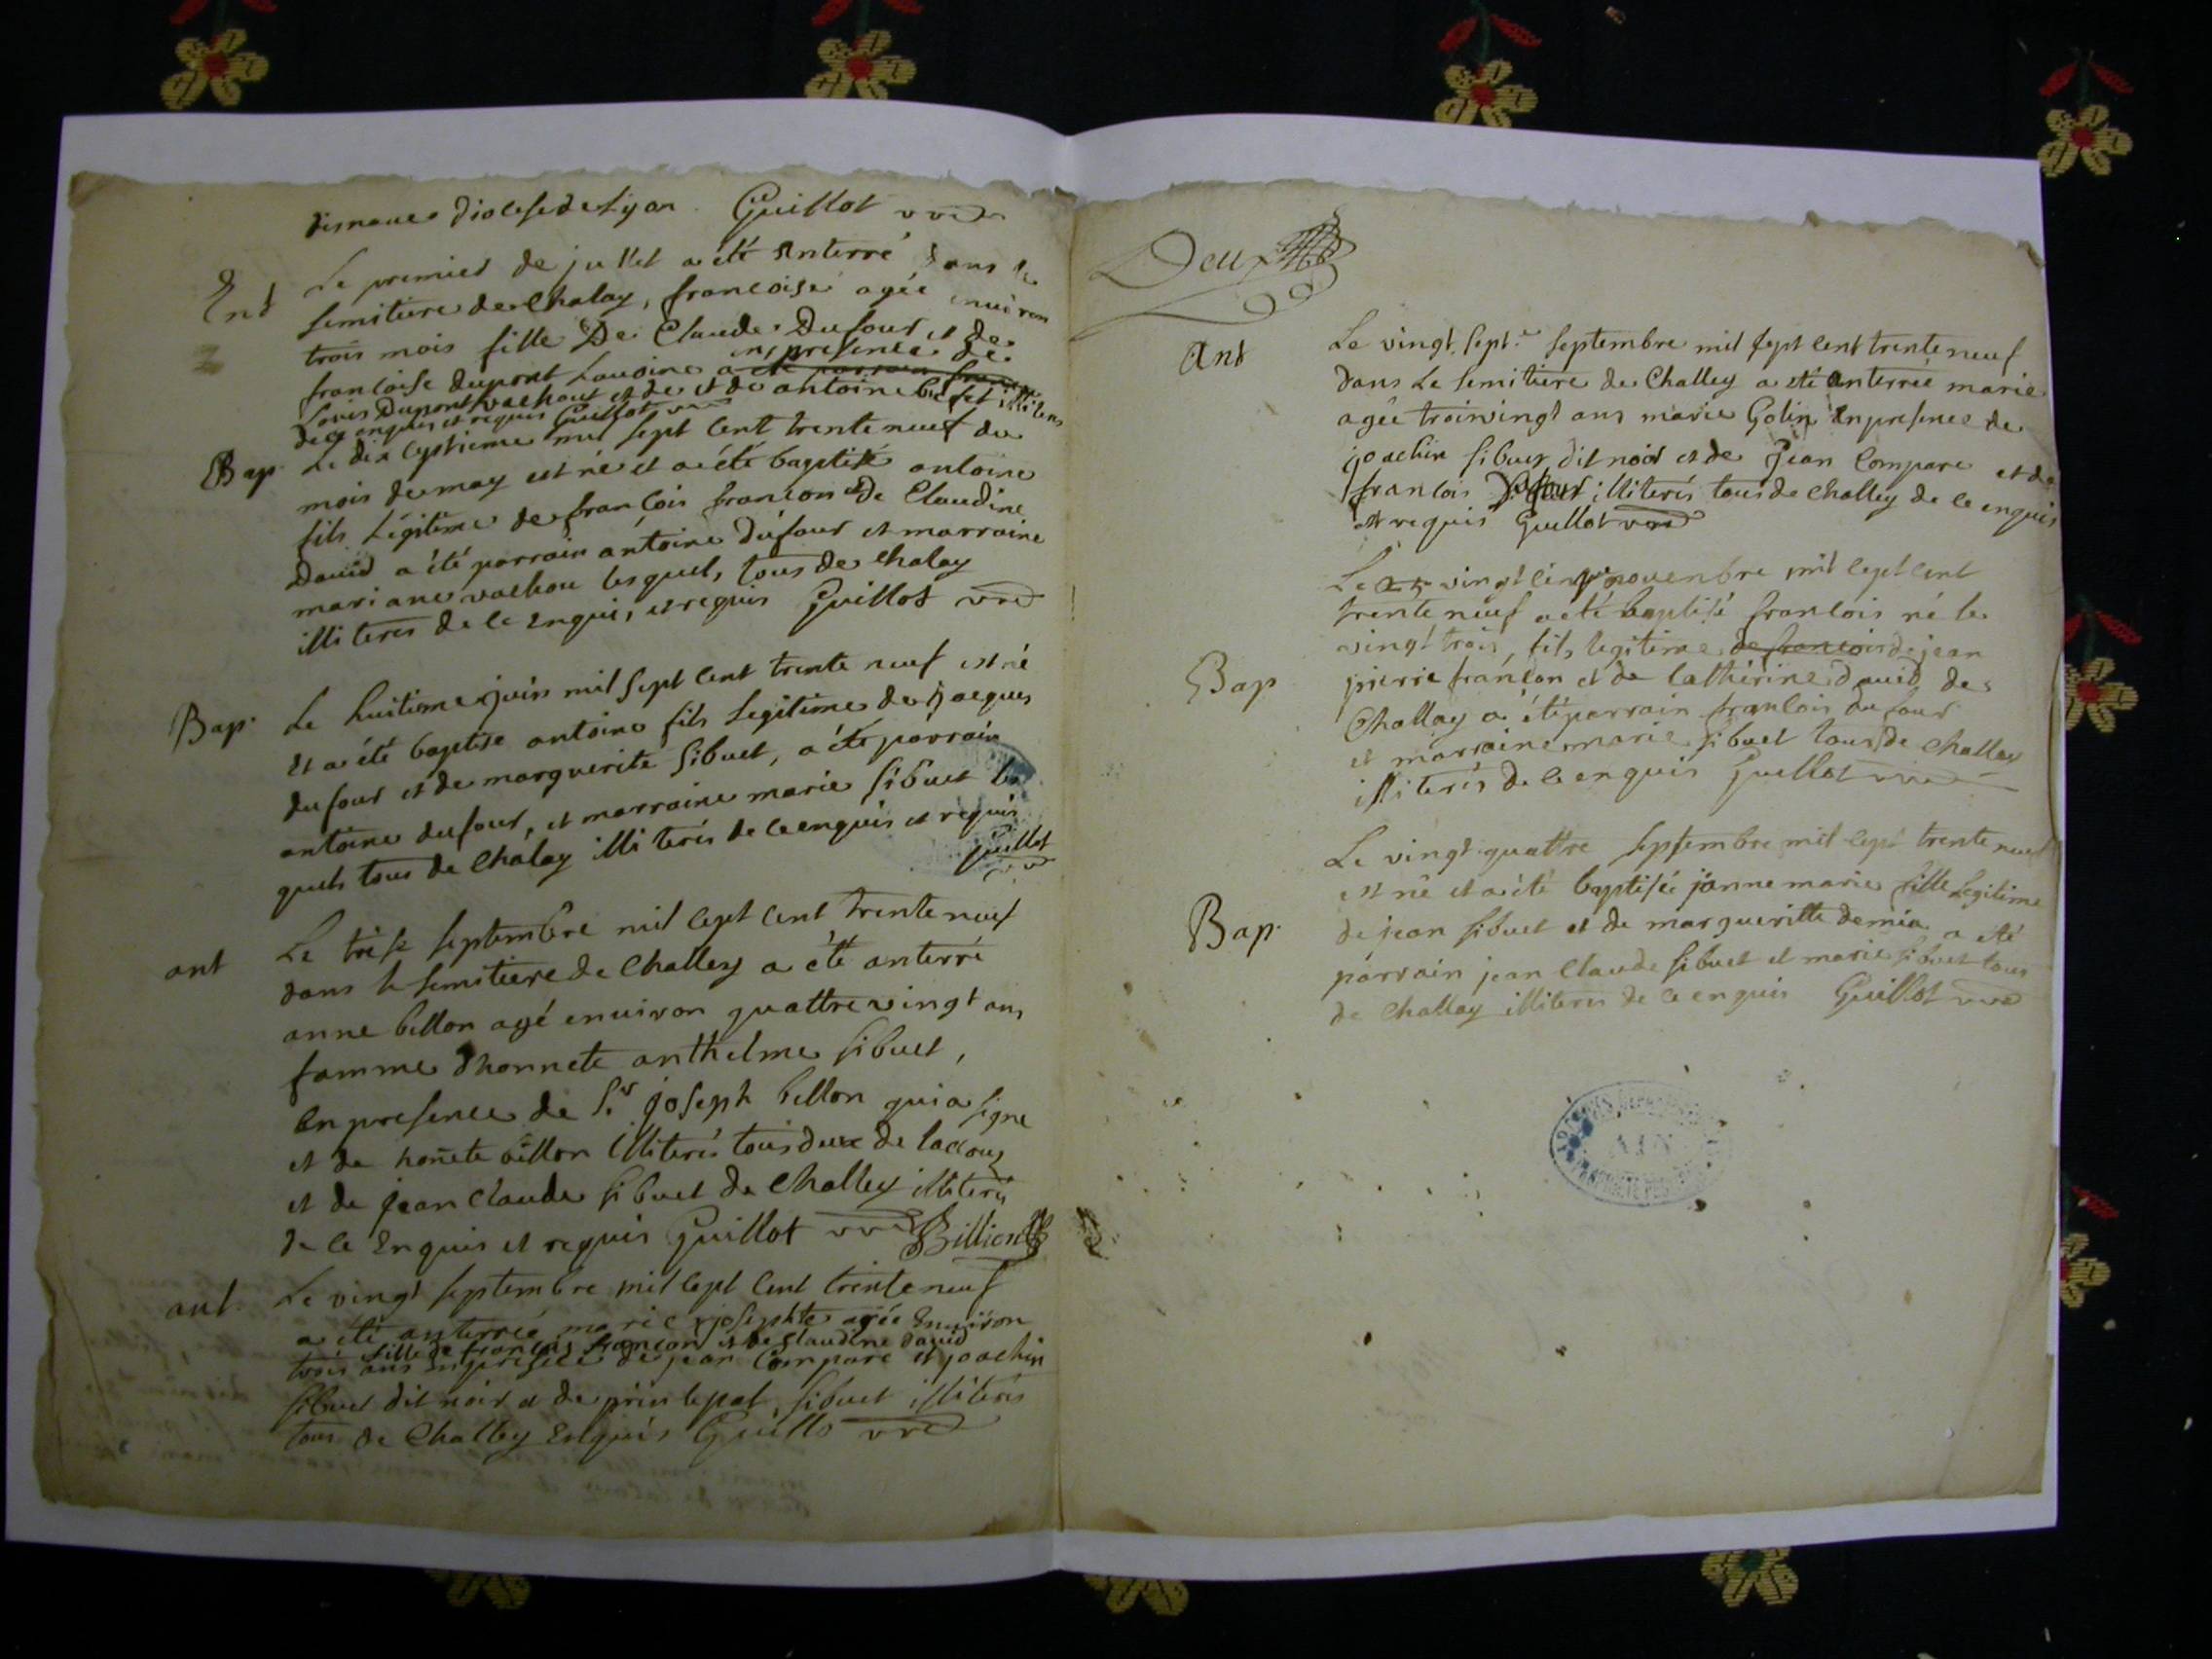 diocese de Lyon Guillot
Ent
Le premier de jullet a été Anterré dans le
semitiere de Chalay, francoise agée enuiron
trois mois fille De Claude Dufour et de
francoise dupont Lauoine en presence de
Louis Dupont et de antoine
de ce enquis et requis Guillot
Bap
Le dix mil sept cent trente neuf du
mois de may est né et a été baptisé antoine
fils Légitime de françois francon et De Claudine
Dauid a été parrain antoine dufour et marraine
mariane vachou lesquels, tous de Chalay
illiteres de ce Enquis, et requis Guillot
Bap.
Le huitieme juin mil sept cent trente neuf est né
Et a été baptise antoine fils Legitime de jacques
dufour et de marguerite Sibuet, a été parrain
antoine dufour, et marraine marie sibuet les
quels tous de Chalay illiterés de ce enquis et requis
Guillot
ant
Le trese septembre mil cept cent trente neuf
dans le semitiere de Challey a été anterré
anne billon agé enuiron quattre vingt ans
famme d'honnete anthelme sibuet,
En presence de Sr joseph billon qui a signe
et de honete billon illiterés tous deux de
et de jean claude sibuet de Challey illiterés
de ce Enquis et requis Guillot Billion
ant
Le vingt septembre mil cept cent trente neuf
a été anterreé marie josephte agée Enuiron
fille de francois francon et de Claudine dauid
trois ans En presece de jean Compare et joachin
sibuet dit noir et de sibuet illiterés
tous de Challey Enquis Guillo
Deux
Ant
Le vingt septe septembre mil sept cent trente neuf
dans Le semitiere de Challey a eté Anterreé marie
agée troisvingt ans marie Golin En presence de
joachin sibuet dit noir et de Jean Compare et de
francois illiterés tous de Challey de ce enquis
et requis Guillot
Le vingt cinq novembre mil cept cent
trente neuf a eté baptisé francois né le
vingt trois, fils legitime de francois de jean
Bap
pierre francon et de Catherine dauid de
Challay a été parrain francois dufour
et marraine marie sibuet tous de Challay
illiterés de ce enquis Guillot
Le vingt quattre septembre mil cept trente neuf
est né et a été baptiseé janne marie fille Legitime
Bap.
de jean sibuet et de margueritte demia a eté
parrain jean Claude sibuet et marie sibuet tous
de Challay illiteres de ce enquis Guillot
AIN